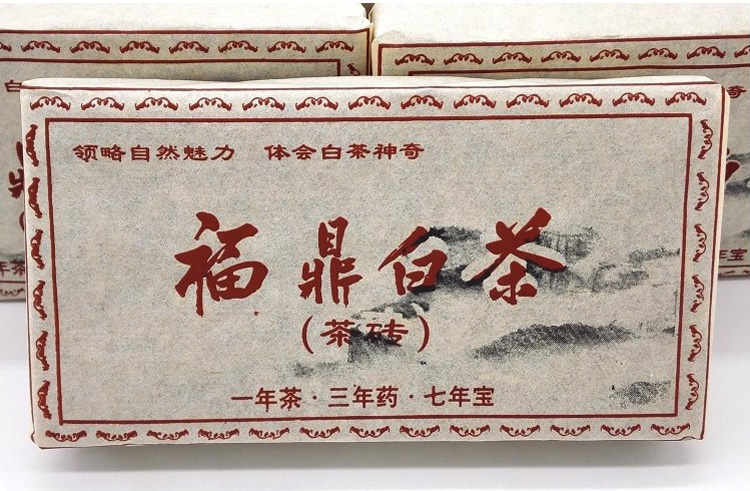 领略自然魅力 体会白茶神奇
福鼎白茶
(茶砖)
一年茶·三年药·七年宝